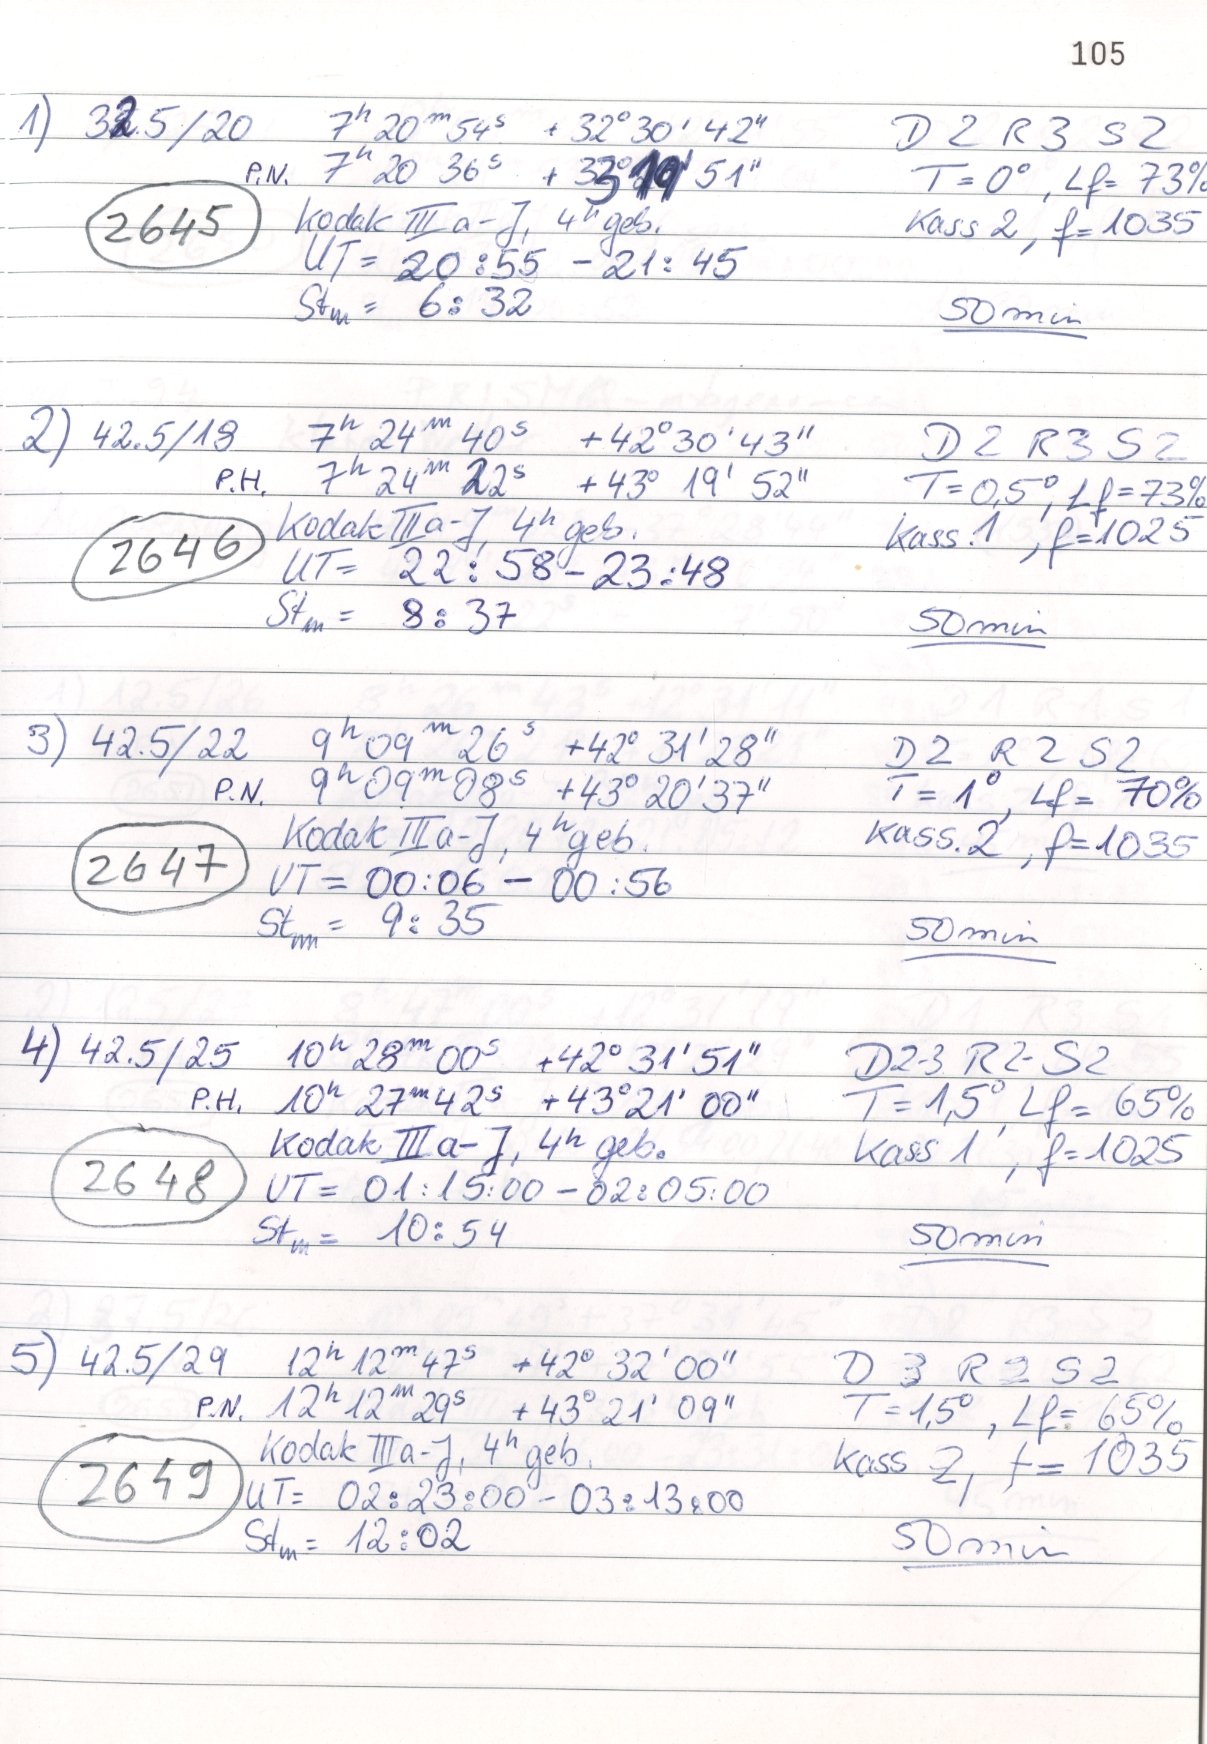 105
1) 32.5/20 7h 20m 54s +32° 30' 42" D 2 R 3 S 2
P.N. 7h 20 36s +33° 19' 51" T = 0°, Lf = 73%
2645 Kodak III a-J, 4h geb. Kass 2, f = 1035
UT = 20:55 - 21:45
Stm = 6:32 50 min
2) 42.5/18 7h 24m 40s +42° 30' 43" D 2 R 3 S 2
P.H. 7h 24m 22s +43° 19' 52" T = 0,5°, Lf = 73%
2646 Kodak III a-J, 4h geb. Kass. 1, f = 1025
UT = 22:58 - 23:48
Stm = 8:37 50 min
3) 42.5/22 9h 09m 26s +42° 31' 28" D 2 R 2 S 2
P.N. 9h 09m 08s +43° 20' 37" T = 1°, Lf = 70%
2647 Kodak III a-J, 4h geb. Kass. 2, f = 1035
UT = 00:06 - 00:56
Stm = 9:35 50 min
4) 42.5/25 10h 28m 00s +42° 31' 51" D2-3 R2- S2
P.H. 10h 27m 42s +43° 21' 00" T = 1,5° Lf = 65%
2648 Kodak III a-J, 4h geb. Kass 1, f = 1025
UT = 01:15:00 - 02:05:00
Stm = 10:54 50 min
5) 42.5/29 12h 12m 47s +42° 32' 00" D 3 R 2 S 2
P.N. 12h 12m 29s +43° 21' 09" T = 1,5°, Lf = 65%
2649 Kodak III a-J, 4h geb. Kass 2, f = 1035
UT = 02:23:00 - 03:13:00
Stm = 12:02 50 min